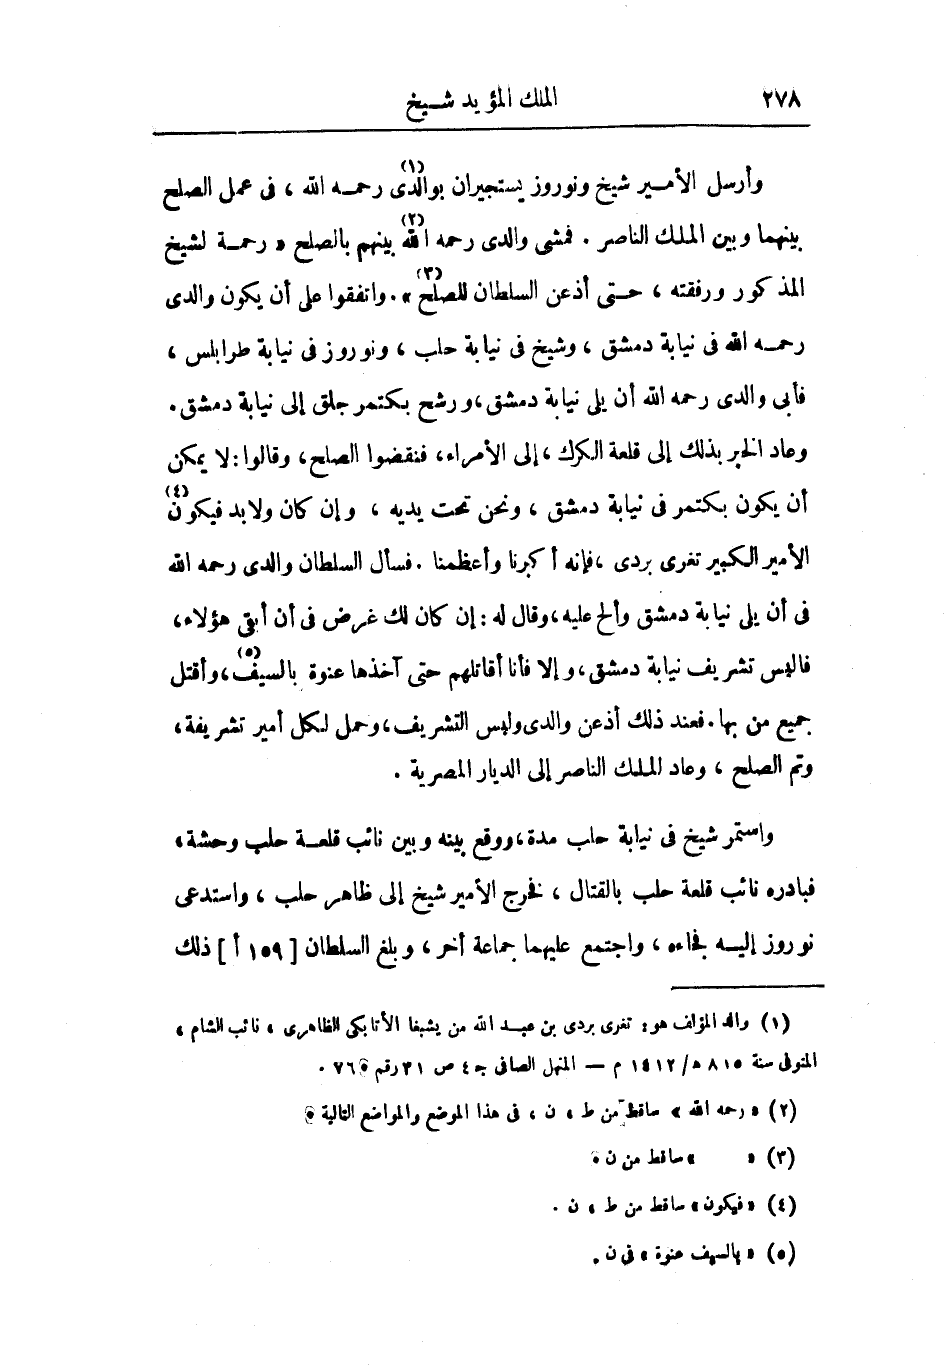 ٢٧٨ الملك المؤيد شيخ
وأرسل الأمير شيخ ونوروز يستجيران بوالدى(١) رحمه الله ، فى عمل الصلح
بينهما وبين الملك الناصر . فمشى والدى رحمه الله(٢) بينهم بالصلح « رحمة لشيخ
المذكور ورفقته ، حتى أذعن السلطان للصلح(٣) » . واتفقوا على أن يكون والدى
رحمه الله فى نيابة دمشق ، وشيخ فى نيابة حلب ، ونوروز فى نيابة طرابلس ،
فأبى والدى رحمه الله أن يلى نيابة دمشق ، ورشح بكتمر جلق إلى نيابة دمشق .
وعاد الخبر بذلك إلى قلعة الكرك ، إلى الأمراء ، فنقضوا الصلح ، وقالوا : لا يمكن
أن يكون بكتمر فى نيابة دمشق ، ونحن تحت يديه ، وإن كان ولابد فيكون(٤)
الأمير الكبير تغرى بردى ، فإنه أكبرنا وأعظمنا . فسأل السلطان والدى رحمه الله
فى أن يلى نيابة دمشق وألح عليه ، وقال له : إن كان لك غرض فى أن أبقى هؤلاء ،
فالبس تشريف نيابة دمشق ، وإلا فأنا أقاتلهم حتى آخذها عنوة بالسيف(٥) ، وأقتل
جميع من بها . فعند ذلك أذعن والدى ولبس التشريف ، وحمل لكل أمير تشريفة ،
وتم الصلح ، وعاد الملك الناصر إلى الديار المصرية .
واستمر شيخ فى نيابة حلب مدة ، ووقع بينه وبين نائب قلعة حلب وحشة ،
فبادره نائب قلعة حلب بالقتال ، فخرج الأمير شيخ إلى ظاهر حلب ، واستدعى
نوروز إليه فجاءه ، واجتمع عليهما جماعة أخر ، وبلغ السلطان [ ١٥٩ أ ] ذلك
(١) والد المؤلف هو : تغرى بردى بن عبد الله من يشبغا الأتابكى الظاهرى ، نائب الشام ،
المتوفى سنة ٨١٥ ه / ١٤١٢ م — المنهل الصافى ج ٤ ص ٣١ رقم ٧٦٠ .
(٢) « رحمه الله » ساقط من ط ، ن ، فى هذا الموضع والمواضع التالية .
(٣) « » ساقط من ن .
(٤) « فيكون » ساقط من ط ، ن .
(٥) « بالسيف عنوة » فى ن .